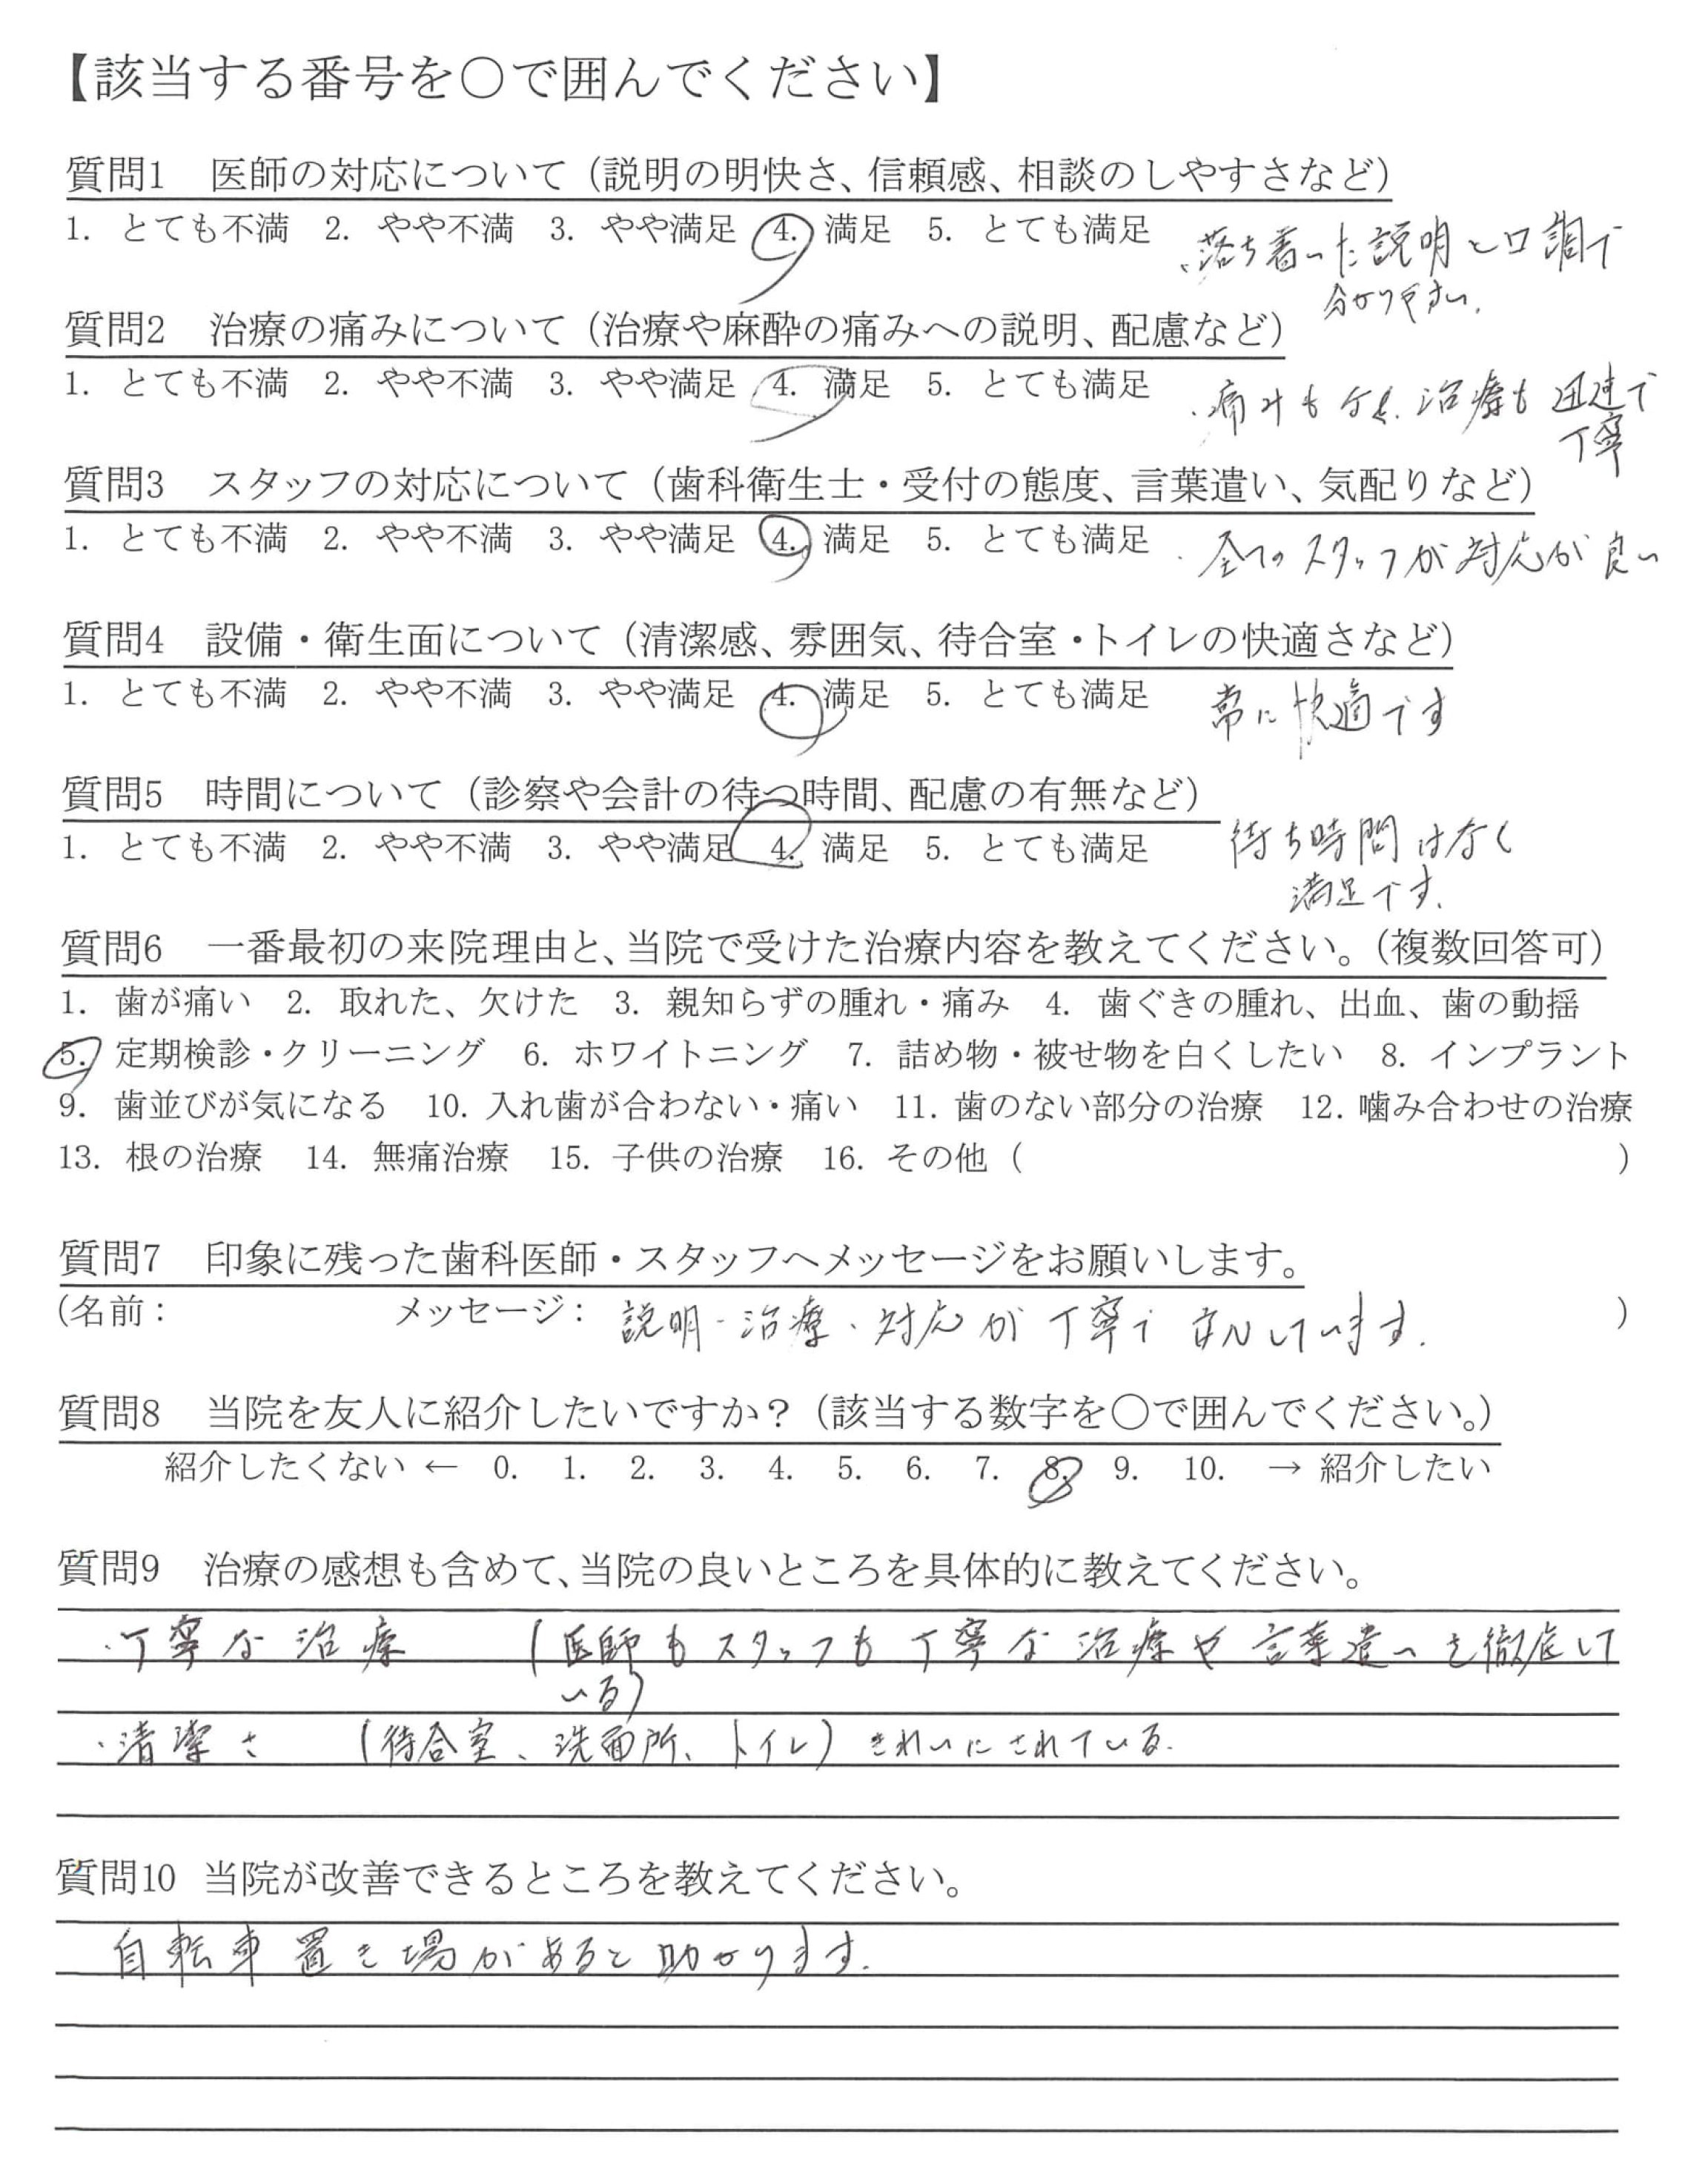 【該当する番号を○で囲んでください】
質問1　医師の対応について（説明の明快さ、信頼感、相談のしやすさなど）
1. とても不満　2. やや不満　3. やや満足　4. 満足　5. とても満足　・落ち着いた説明と口調で
分かりやすい。
質問2　治療の痛みについて（治療や麻酔の痛みへの説明、配慮など）
1. とても不満　2. やや不満　3. やや満足　4. 満足　5. とても満足　・痛みもなく、治療も迅速で
丁寧
質問3　スタッフの対応について（歯科衛生士・受付の態度、言葉遣い、気配りなど）
1. とても不満　2. やや不満　3. やや満足　4. 満足　5. とても満足　・全てのスタッフが対応が良い
質問4　設備・衛生面について（清潔感、雰囲気、待合室・トイレの快適さなど）
1. とても不満　2. やや不満　3. やや満足　4. 満足　5. とても満足　常に快適です
質問5　時間について（診察や会計の待つ時間、配慮の有無など）
1. とても不満　2. やや不満　3. やや満足　4. 満足　5. とても満足　待ち時間はなく
満足です。
質問6　一番最初の来院理由と、当院で受けた治療内容を教えてください。（複数回答可）
1. 歯が痛い　2. 取れた、欠けた　3. 親知らずの腫れ・痛み　4. 歯ぐきの腫れ、出血、歯の動揺
5. 定期検診・クリーニング　6. ホワイトニング　7. 詰め物・被せ物を白くしたい　8. インプラント
9. 歯並びが気になる　10. 入れ歯が合わない・痛い　11. 歯のない部分の治療　12. 噛み合わせの治療
13. 根の治療　14. 無痛治療　15. 子供の治療　16. その他（　　　）
質問7　印象に残った歯科医師・スタッフへメッセージをお願いします。
（名前：　　　メッセージ：説明・治療・対応が丁寧で安心しています。）
質問8　当院を友人に紹介したいですか？（該当する数字を○で囲んでください。）
紹介したくない ← 0. 1. 2. 3. 4. 5. 6. 7. 8. 9. 10. → 紹介したい
質問9　治療の感想も含めて、当院の良いところを具体的に教えてください。
・丁寧な治療　（医師もスタッフも丁寧な治療や言葉遣いを徹底して
いる）
・清潔さ　（待合室、洗面所、トイレ）きれいにされている。
質問10 当院が改善できるところを教えてください。
自転車置き場があると助かります。